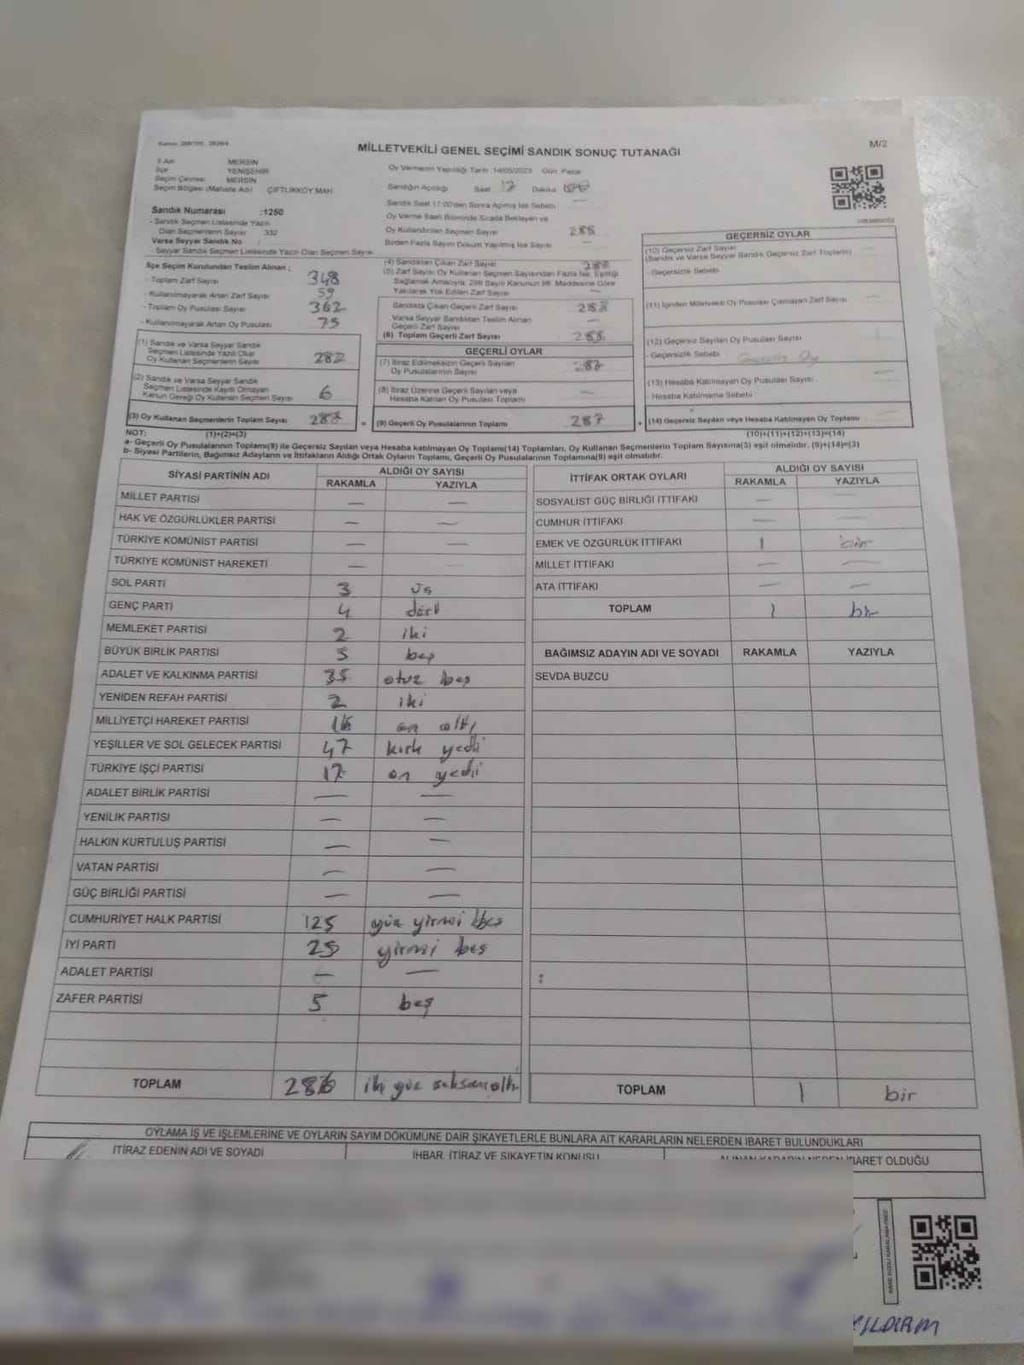 MİLLETVEKİLİ GENEL SEÇİMİ SANDIK SONUÇ TUTANAĞI
M/2
İli Adı MERSİN
İlçe YENİŞEHİR
Seçim Çevresi MERSİN
Seçim Bölgesi (Mahalle Adı) ÇİFTLİKKÖY MAH.
Sandık Numarası :1250
- Sandık Seçmen Listesinde Yazılı
Olan Seçmenlerin Sayısı 332
Varsa Seyyar Sandık No
- Seyyar Sandık Seçmen Listesinde Yazılı Olan Seçmen Sayısı
İlçe Seçim Kurulundan Teslim Alınan ;
- Toplam Zarf Sayısı 348
- Kullanılmayarak Artan Zarf Sayısı 59
- Toplam Oy Pusulası Sayısı 362
- Kullanılmayarak Artan Oy Pusulası 75
(1) Sandık ve Varsa Seyyar Sandık
Seçmen Listesinde Yazılı Olup
Oy Kullanan Seçmenlerin Sayısı 282
(2) Sandık ve Varsa Seyyar Sandık
Seçmen Listesinde Kayıtlı Olmayan
Kanun Gereği Oy Kullanan Seçmen Sayısı 6
(3) Oy Kullanan Seçmenlerin Toplam Sayısı 288
(1)+(2)=(3)
Oy Vermenin Yapıldığı Tarih 14/05/2023 Gün Pazar
Sandığın Açıldığı Saat 17 Dakika
Sandık Saat 17:00'den Sonra Açılmış İse Sebebi
Oy Verme Saati Bitiminde Sırada Bekleyen ve
Oy Kullandırılan Seçmen Sayısı
Birden Fazla Sayım Döküm Yapılmış İse Sayısı
(4) Sandıktan Çıkan Zarf Sayısı 288
(5) Zarf Sayısı Oy Kullanan Seçmen Sayısından Fazla İse, Eşitliği
Sağlamak Amacıyla, 298 Sayılı Kanunun 98. Maddesine Göre
Yakılarak Yok Edilen Zarf Sayısı
Sandıkta Çıkan Geçerli Zarf Sayısı 288
Varsa Seyyar Sandıktan Teslim Alınan
Geçerli Zarf Sayısı
(6) Toplam Geçerli Zarf Sayısı 288
GEÇERLİ OYLAR
(7) İtiraz Edilmeksizin Geçerli Sayılan
Oy Pusulalarının Sayısı 287
(8) İtiraz Üzerine Geçerli Sayılan veya
Hesaba Katılan Oy Pusulası Toplamı
(9) Geçerli Oy Pusulalarının Toplamı 287
GEÇERSİZ OYLAR
(10) Geçersiz Zarf Sayısı
(Sandık ve Varsa Seyyar Sandık Geçersiz Zarf Toplamı)
- Geçersizlik Sebebi
(11) İçinden Milletvekili Oy Pusulası Çıkmayan Zarf Sayısı
(12) Geçersiz Sayılan Oy Pusulası Sayısı
- Geçersizlik Sebebi
(13) Hesaba Katılmayan Oy Pusulası Sayısı
- Hesaba Katılmama Sebebi
(14) Geçersiz Sayılan veya Hesaba Katılmayan Oy Toplamı
(10)+(11)+(12)+(13)=(14)
NOT:
a- Geçerli Oy Pusulalarının Toplamı(9) ile Geçersiz Sayılan veya Hesaba Katılmayan Oy Toplamı(14) Toplamları, Oy Kullanan Seçmenlerin Toplam Sayısına(3) eşit olmalıdır, (9)+(14)=(3)
b- Siyasi Partilerin, Bağımsız Adayların ve İttifakların Aldığı Ortak Oyların Toplamı, Geçerli Oy Pusulalarının Toplamına(9) eşit olmalıdır.
SİYASİ PARTİNİN ADI ALDIĞI OY SAYISI
RAKAMLA YAZIYLA
MİLLET PARTİSİ — —
HAK VE ÖZGÜRLÜKLER PARTİSİ — —
TÜRKİYE KOMÜNİST PARTİSİ — —
TÜRKİYE KOMÜNİST HAREKETİ —
SOL PARTİ 3 üç
GENÇ PARTİ 4 dört
MEMLEKET PARTİSİ 2 iki
BÜYÜK BİRLİK PARTİSİ 5 beş
ADALET VE KALKINMA PARTİSİ 35 otuz beş
YENİDEN REFAH PARTİSİ 2 iki
MİLLİYETÇİ HAREKET PARTİSİ 16 on altı
YEŞİLLER VE SOL GELECEK PARTİSİ 47 kırk yedi
TÜRKİYE İŞÇİ PARTİSİ 17 on yedi
ADALET BİRLİK PARTİSİ — —
YENİLİK PARTİSİ — —
HALKIN KURTULUŞ PARTİSİ — —
VATAN PARTİSİ — —
GÜÇ BİRLİĞİ PARTİSİ — —
CUMHURİYET HALK PARTİSİ 125 yüz yirmi beş
İYİ PARTİ 25 yirmi beş
ADALET PARTİSİ — —
ZAFER PARTİSİ 5 beş
TOPLAM 286 iki yüz seksen altı
İTTİFAK ORTAK OYLARI ALDIĞI OY SAYISI
RAKAMLA YAZIYLA
SOSYALİST GÜÇ BİRLİĞİ İTTİFAKI — —
CUMHUR İTTİFAKI — —
EMEK VE ÖZGÜRLÜK İTTİFAKI 1 bir
MİLLET İTTİFAKI — —
ATA İTTİFAKI — —
TOPLAM 1 bir
BAĞIMSIZ ADAYIN ADI VE SOYADI RAKAMLA YAZIYLA
SEVDA BUZCU
:
TOPLAM 1 bir
OYLAMA İŞ VE İŞLEMLERİNE VE OYLARIN SAYIM DÖKÜMÜNE DAİR ŞİKAYETLERLE BUNLARA AİT KARARLARIN NELERDEN İBARET BULUNDUKLARI
İTİRAZ EDENİN ADI VE SOYADI İHBAR, İTİRAZ VE ŞİKAYETİN KONUSU ALINAN KARARIN NEDEN İBARET OLDUĞU
YILDIRIM